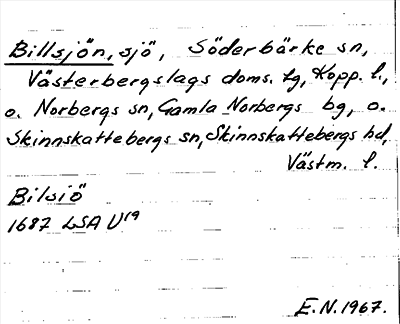 Billsjön, sjö, Söderbärke sn,
Västerbergslags doms. tg, Kopp. l.,
o. Norbergs sn, Gamla Norbergs bg, o.
Skinnskattebergs sn, Skinnskattebergs hd,
Västm. l.
Bilsiö
1687 LSA U19
E.N. 1967.